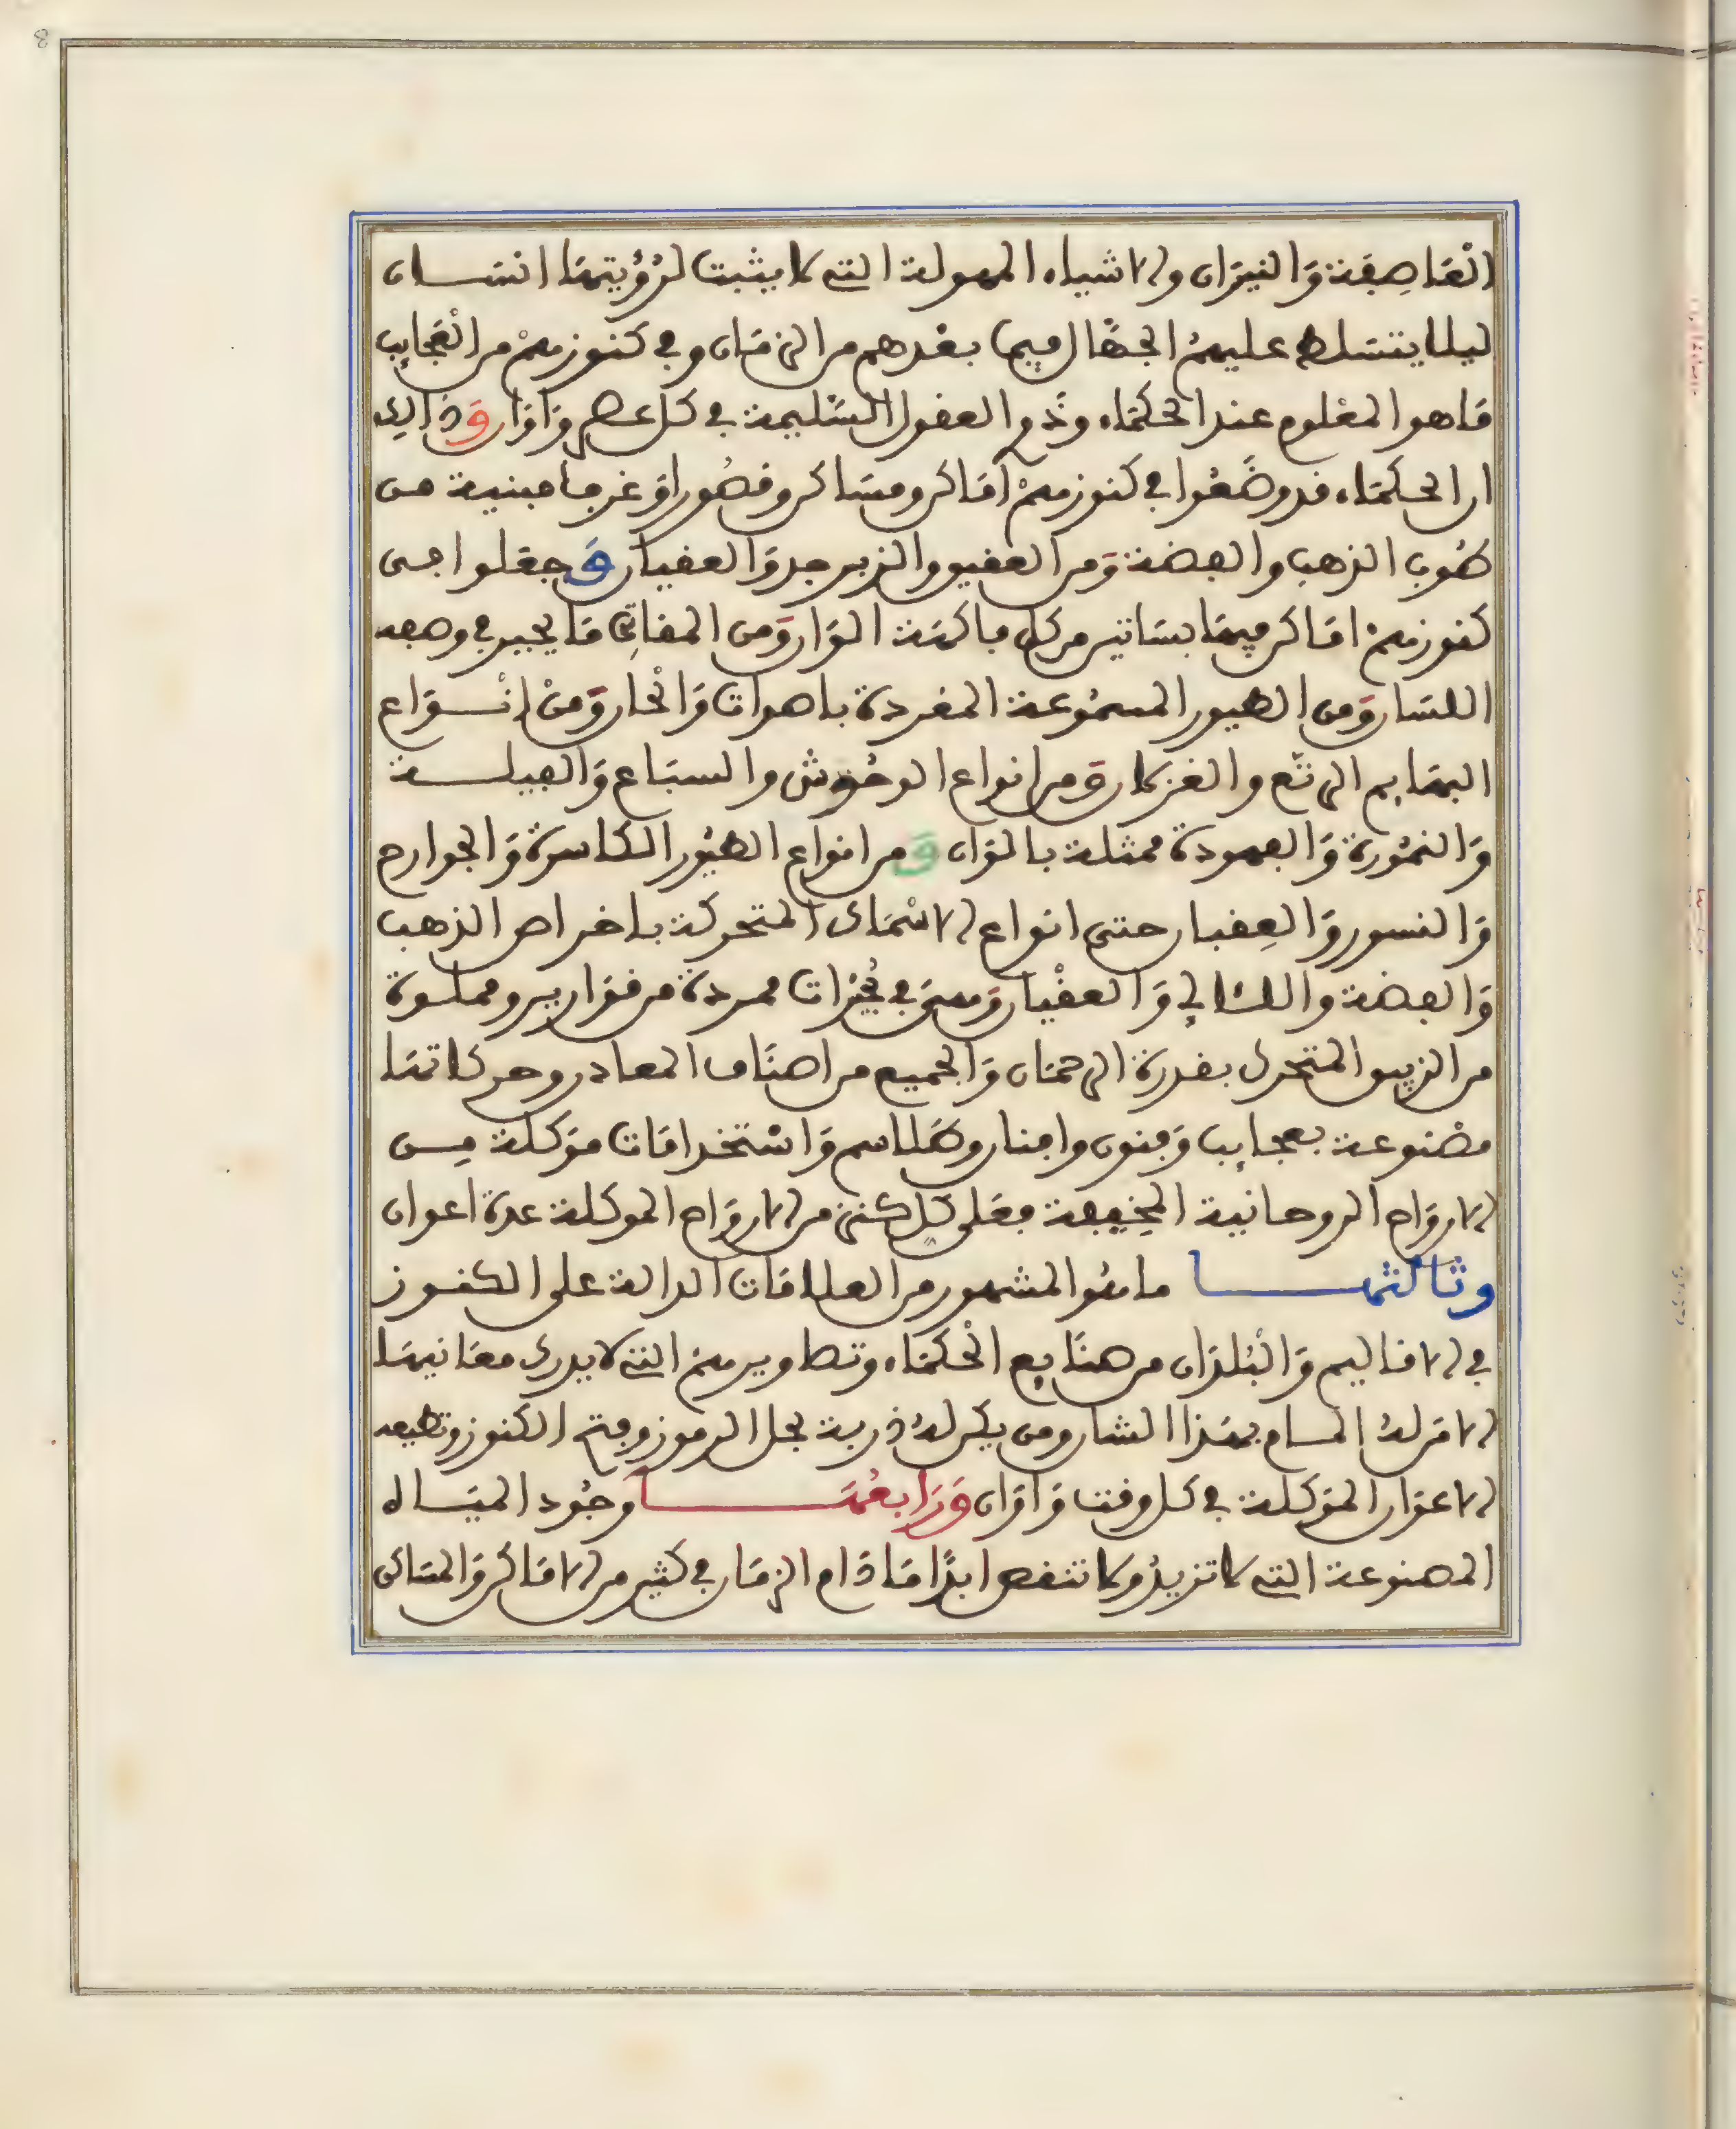 8
العَاصِفَة وَالنيرَان والاشياء المهولة التي لا يثبت لرُؤيتهَا انسَان
ليلا يتسَلط عليهمُ الجهَّال فيما بعْدهم من الزمَان وفي كنوزهمْ من العَجايب
مَا هو المعْلوم عند الحكمَاء وذوي العقول السَّليمة في كل عصر وَاوَان وَذالك
ان الحكمَاء قد وضَعُوا في كنوزهمْ امَاكن ومسَاكن وقصُورا وَغرفا مبنية من
طوب الذهب والفضة وَمن العقيق والزبرجد وَالعقيان وَجعَلوا في
كنوزهمْ امَاكن فيهَا بسَاتين من كل فاكهَة الوَان وَمن المغاني مَا يحير في وصفه
اللسَان وَمن الطيور المسمُوعة المغردة باصوات وَالحان وَمنْ انْوَاع
البهَايم الرتّع والغزلان وَمن انواع الوحُوش والسبَاع وَالفيلة
وَالنمُورة وَالفهودة ممثلة بالوَان وَمن انوَاع الطيُور الكاسرة وَالجوارح
وَالنسور وَالعِقبان حتى انواع الاسْمَاك المتحركة باخراص الذهب
وَالفضة واللئالي وَالعقْيان وَهيَ في بحُيرَات ممردة من قوَارير ومملوة
من الزيبق المتحرك بقدرة الرحمَان وَالجميع من اصنَاف المعادن وحركاتهَا
مصْنوعة بعجايب وَفنون وافنان وطَلاسم وَاسْتخدامَات موَكلة مِن
الاروَاح الروحانية الخفِيفة فعَلى كل كنز من الاروَاح الموكلة عدة اعوان
وثالثهَا مَا هُو المشهور من العلامَات الدالة على الكنوز
في الاقاليم وَالبُلدَان من صنَايع الحُكمَاء وتصاويرهمُ التي لا يدرك معَانيهَا
الا مَن لهُ المام بهَذا الشان ومن يكن لهُ ذربة بحل الرموز وفتح الكنوز وتطيعه
الاعوَان الموَكلة في كل وقت وَاوَان وَرَابعُهَا وجُود الميَاه
المصنوعة التي لا تزيدُ ولا تنقص ابدًا مَا دَام الزمَان في كثير من الامَاكن وَالمسَالك